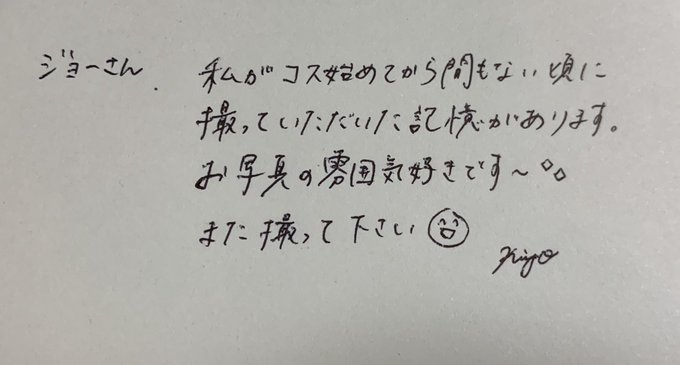 ジョーさん
私がコス始めてから間もない頃に
撮っていただいた記憶があります。
お写真の雰囲気好きです〜
また撮って下さい